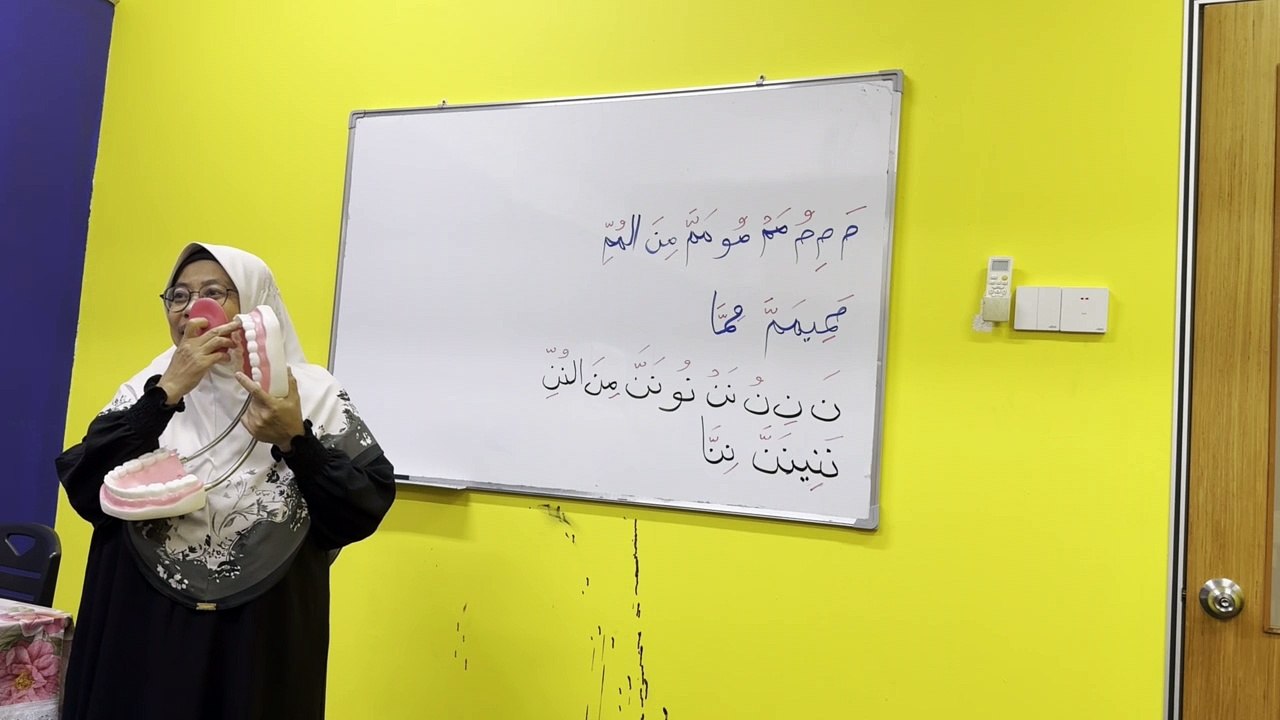 مَ مِ مُ مَمْ مُو مَمَّ مِنَ الْمُمِّ
مَمِيمَمَّ مِمَّا
نَ نِ نُ نَنْ نُو نَنَّ مِنَ النُنِّ
نَنِينَنَّ نِنَّا